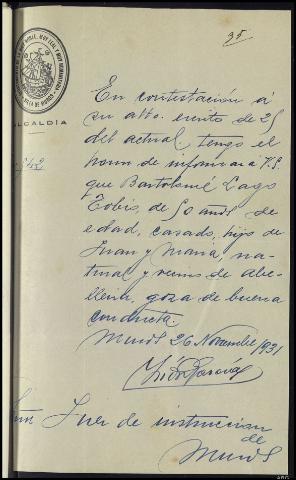 35
ALCALDÍA
En contestación á
su atto. escrito de 25
del actual, tengo el
honor de informar a V.S.
que Bartolomé Lago
de 50 años de
edad, casado, hijo de
Juan y María, na-
tural y vecino de Abe-
lleira, goza de buena
conducta.
Muros 26 Novembre 1931
Juez de instruccion
de
Muros